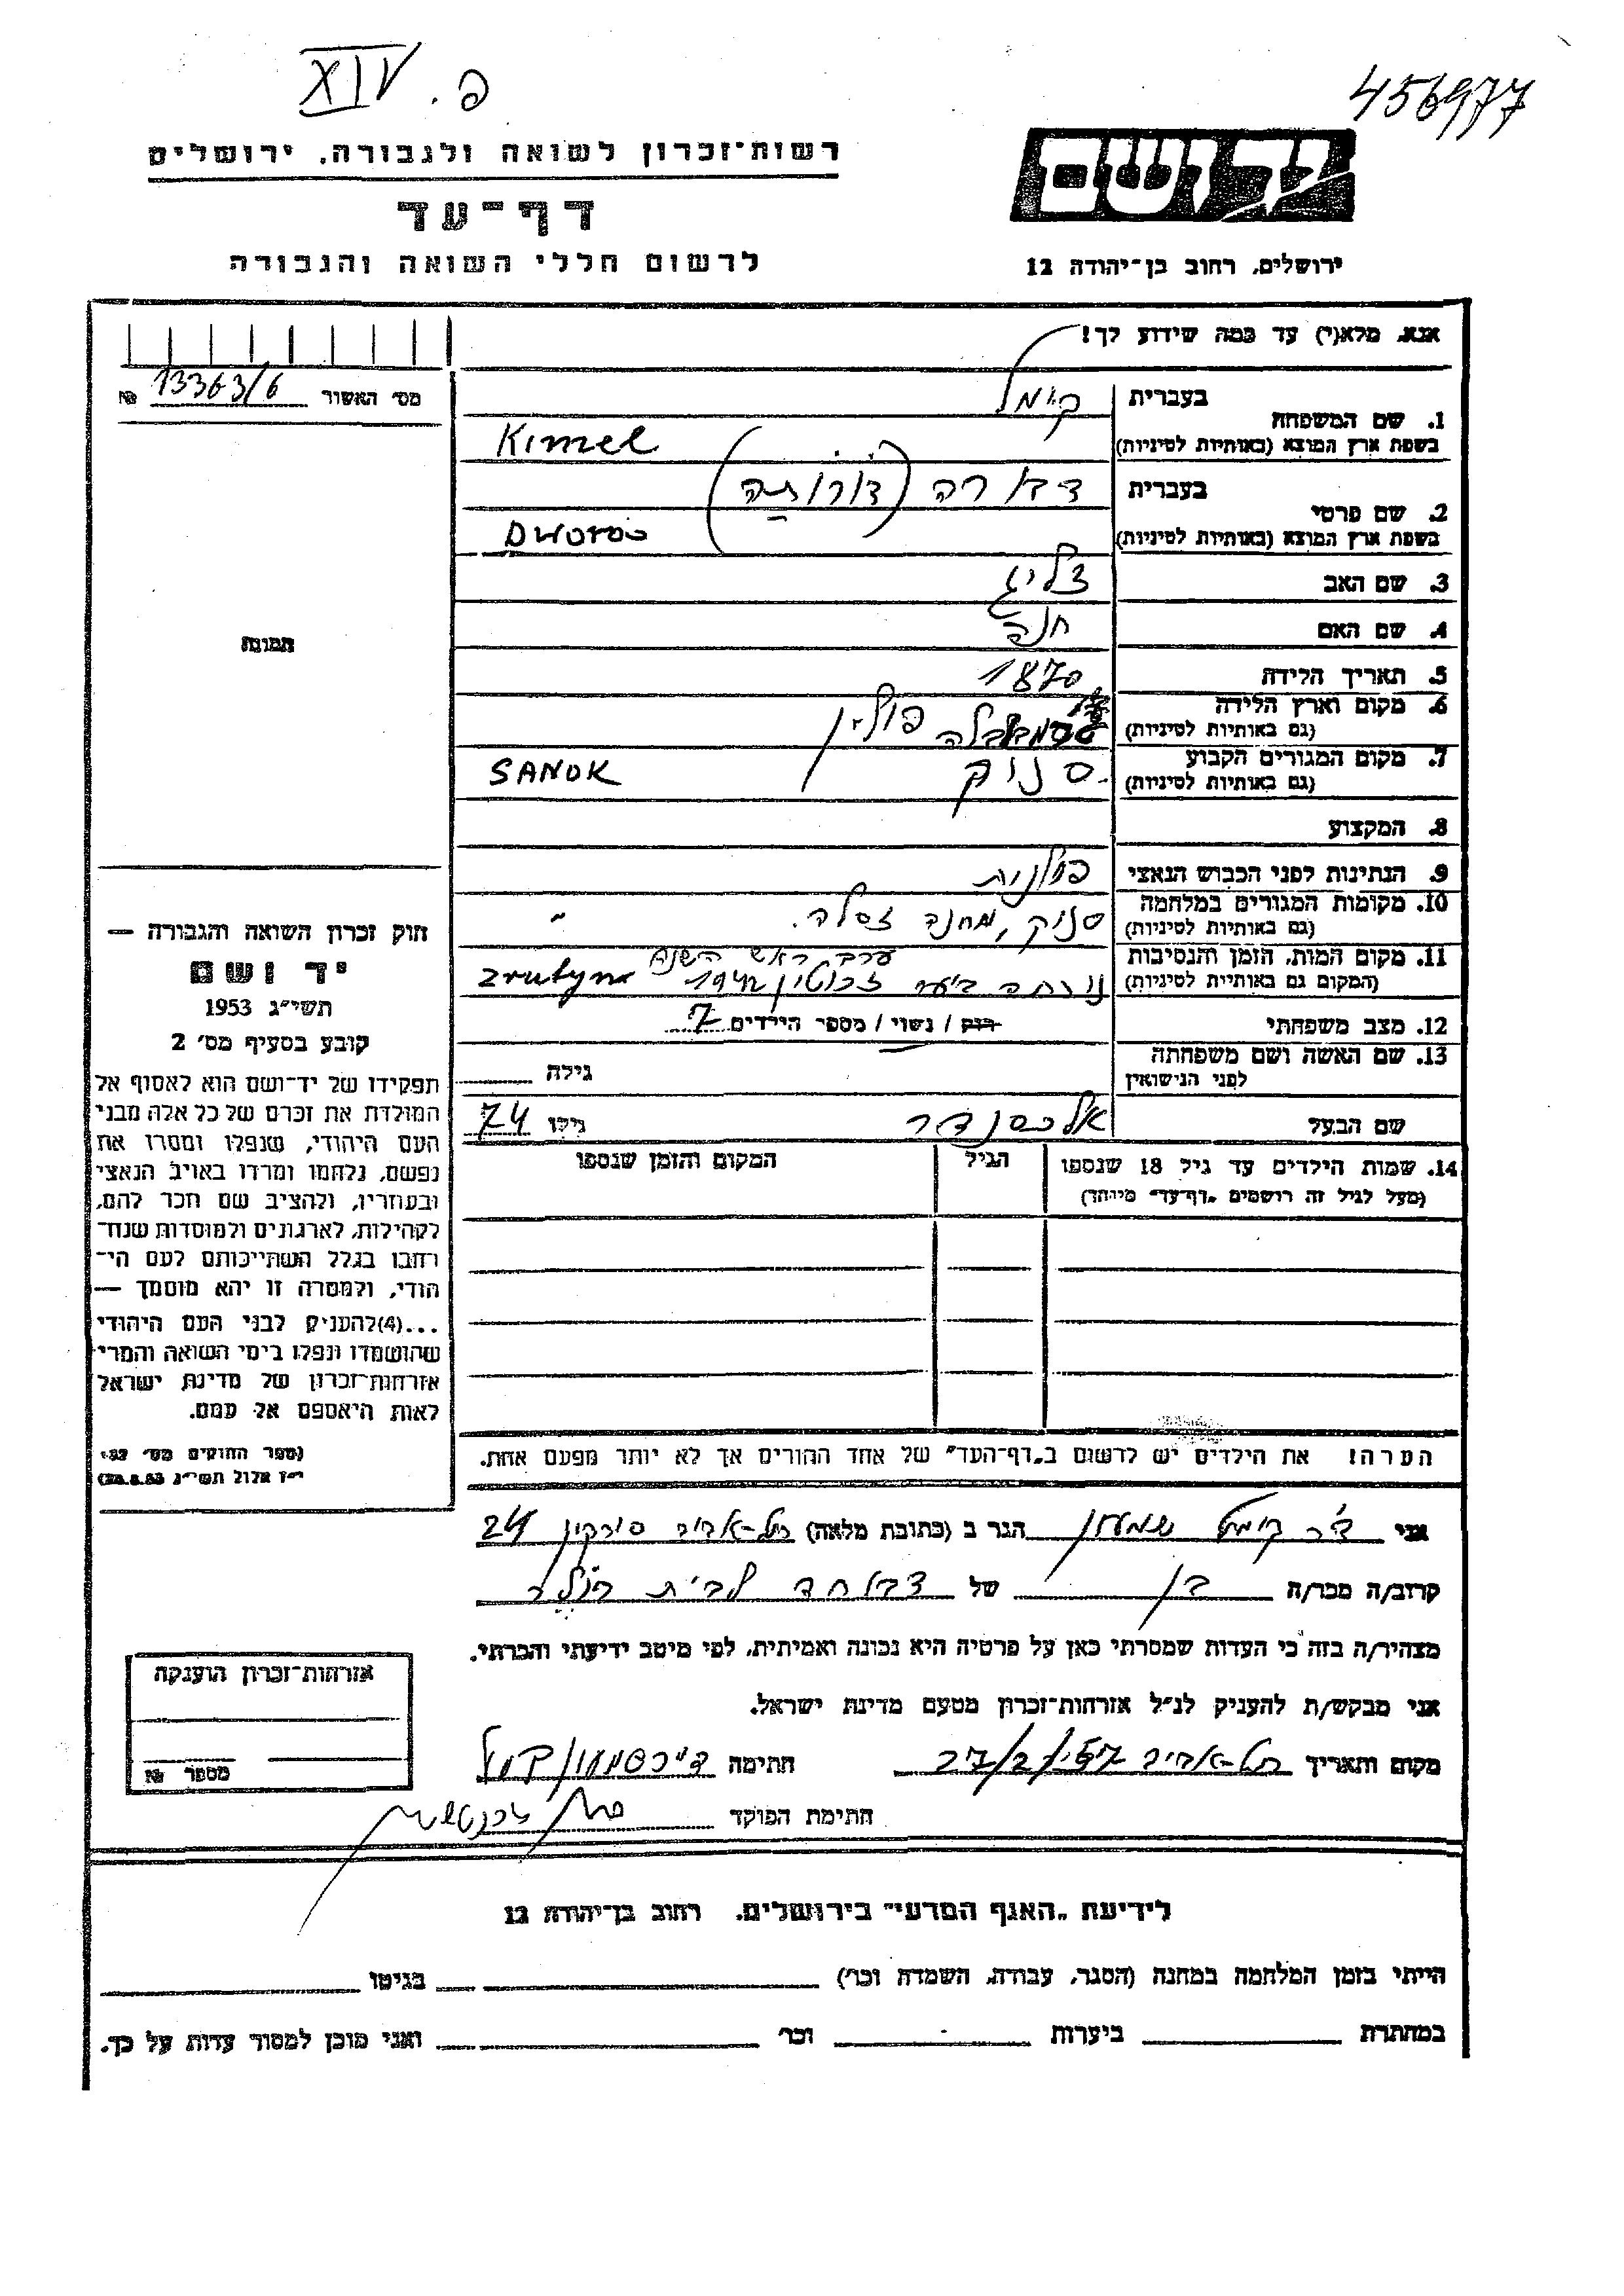 XIV . פ
456977
רשות־זכרון לשואה ולגבורה, ירושלים
דף־עד
לרשום חללי השואה והגבורה
יד ושם
ירושלים, רחוב בן־יהודה 12
אנא, מלא(י) עד כמה שידוע לך!
מס׳ האשור 13363/6 №
תמונה
1. שם המשפחה
בעברית קימל
בשפת ארץ המוצא (באותיות לטיניות) Kimel
2. שם פרטי
בעברית דבורה (דורותה)
בשפת ארץ המוצא (באותיות לטיניות)
3. שם האב זליג
4. שם האם חנה
5. תאריך הלידה 1870
6. מקום וארץ הלידה פולין
(גם באותיות לטיניות)
7. מקום המגורים הקבוע סנוק SANOK
(גם באותיות לטיניות)
8. המקצוע
9. הנתינות לפני הכבוש הנאצי פולנית
10. מקומות המגורים במלחמה סנוק, מחנה זסלה. "
(גם באותיות לטיניות)
11. מקום המות, הזמן והנסיבות ערב ראש השנה
(המקום גם באותיות לטיניות) נורתה ביער 1942
12. מצב משפחתי רוק / נשוי / מספר הילדים 7
13. שם האשה ושם משפחתה
לפני הנישואין גילה
שם הבעל אלכסנדר גילו 74
14. שמות הילדים עד גיל 18 שנספו הגיל המקום והזמן שנספו
(מעל לגיל זה רושמים „דף־עד" מיוחד)
הערה! את הילדים יש לרשום ב„דף־העד" של אחד ההורים אך לא יותר מפעם אחת.
חוק זכרון השואה והגבורה —
יד ושם
תשי״ג 1953
קובע בסעיף מס׳ 2
תפקידו של יד־ושם הוא לאסוף אל
המולדת את זכרם של כל אלה מבני
העם היהודי, שנפלו ומסרו את
נפשם, נלחמו ומרדו באויב הנאצי
ובעוזריו, ולהציב שם וזכר להם,
לקהילות, לארגונים ולמוסדות שנח־
רבו בגלל השתייכותם לעם הי־
הודי, ולמטרה זו יהא מוסמך —
...(4)להעניק לבני העם היהודי
שהושמדו ונפלו בימי השואה והמרי
אזרחות־זכרון של מדינת ישראל
לאות היאספם אל עמם.
(ספר החוקים מס׳ 132,
י״ז אלול תשי״ג 28.8.53)
אני ד״ר קימל שמעון הגר ב (כתובת מלאה) תל-אביב סירקין 24
קרוב/ה מכר/ה בן של לבית
מצהיר/ה בזה כי העדות שמסרתי כאן על פרטיה היא נכונה ואמיתית, לפי מיטב ידיעתי והכרתי.
אני מבקש/ת להעניק לנ״ל אזרחות־זכרון מטעם מדינת ישראל.
מקום ותאריך תל-אביב חתימה ד״ר שמעון קמל
חתימת הפוקד
אזרחות־זכרון הוענקה
מספר №
לידיעת „האגף המדעי" בירושלים. רחוב בן־יהודה 12
הייתי בזמן המלחמה במחנה (הסגר, עבודה, השמדה וכו׳) בגיטו
במחתרת ביערות וכו׳ ואני מוכן למסור עדות על כך.